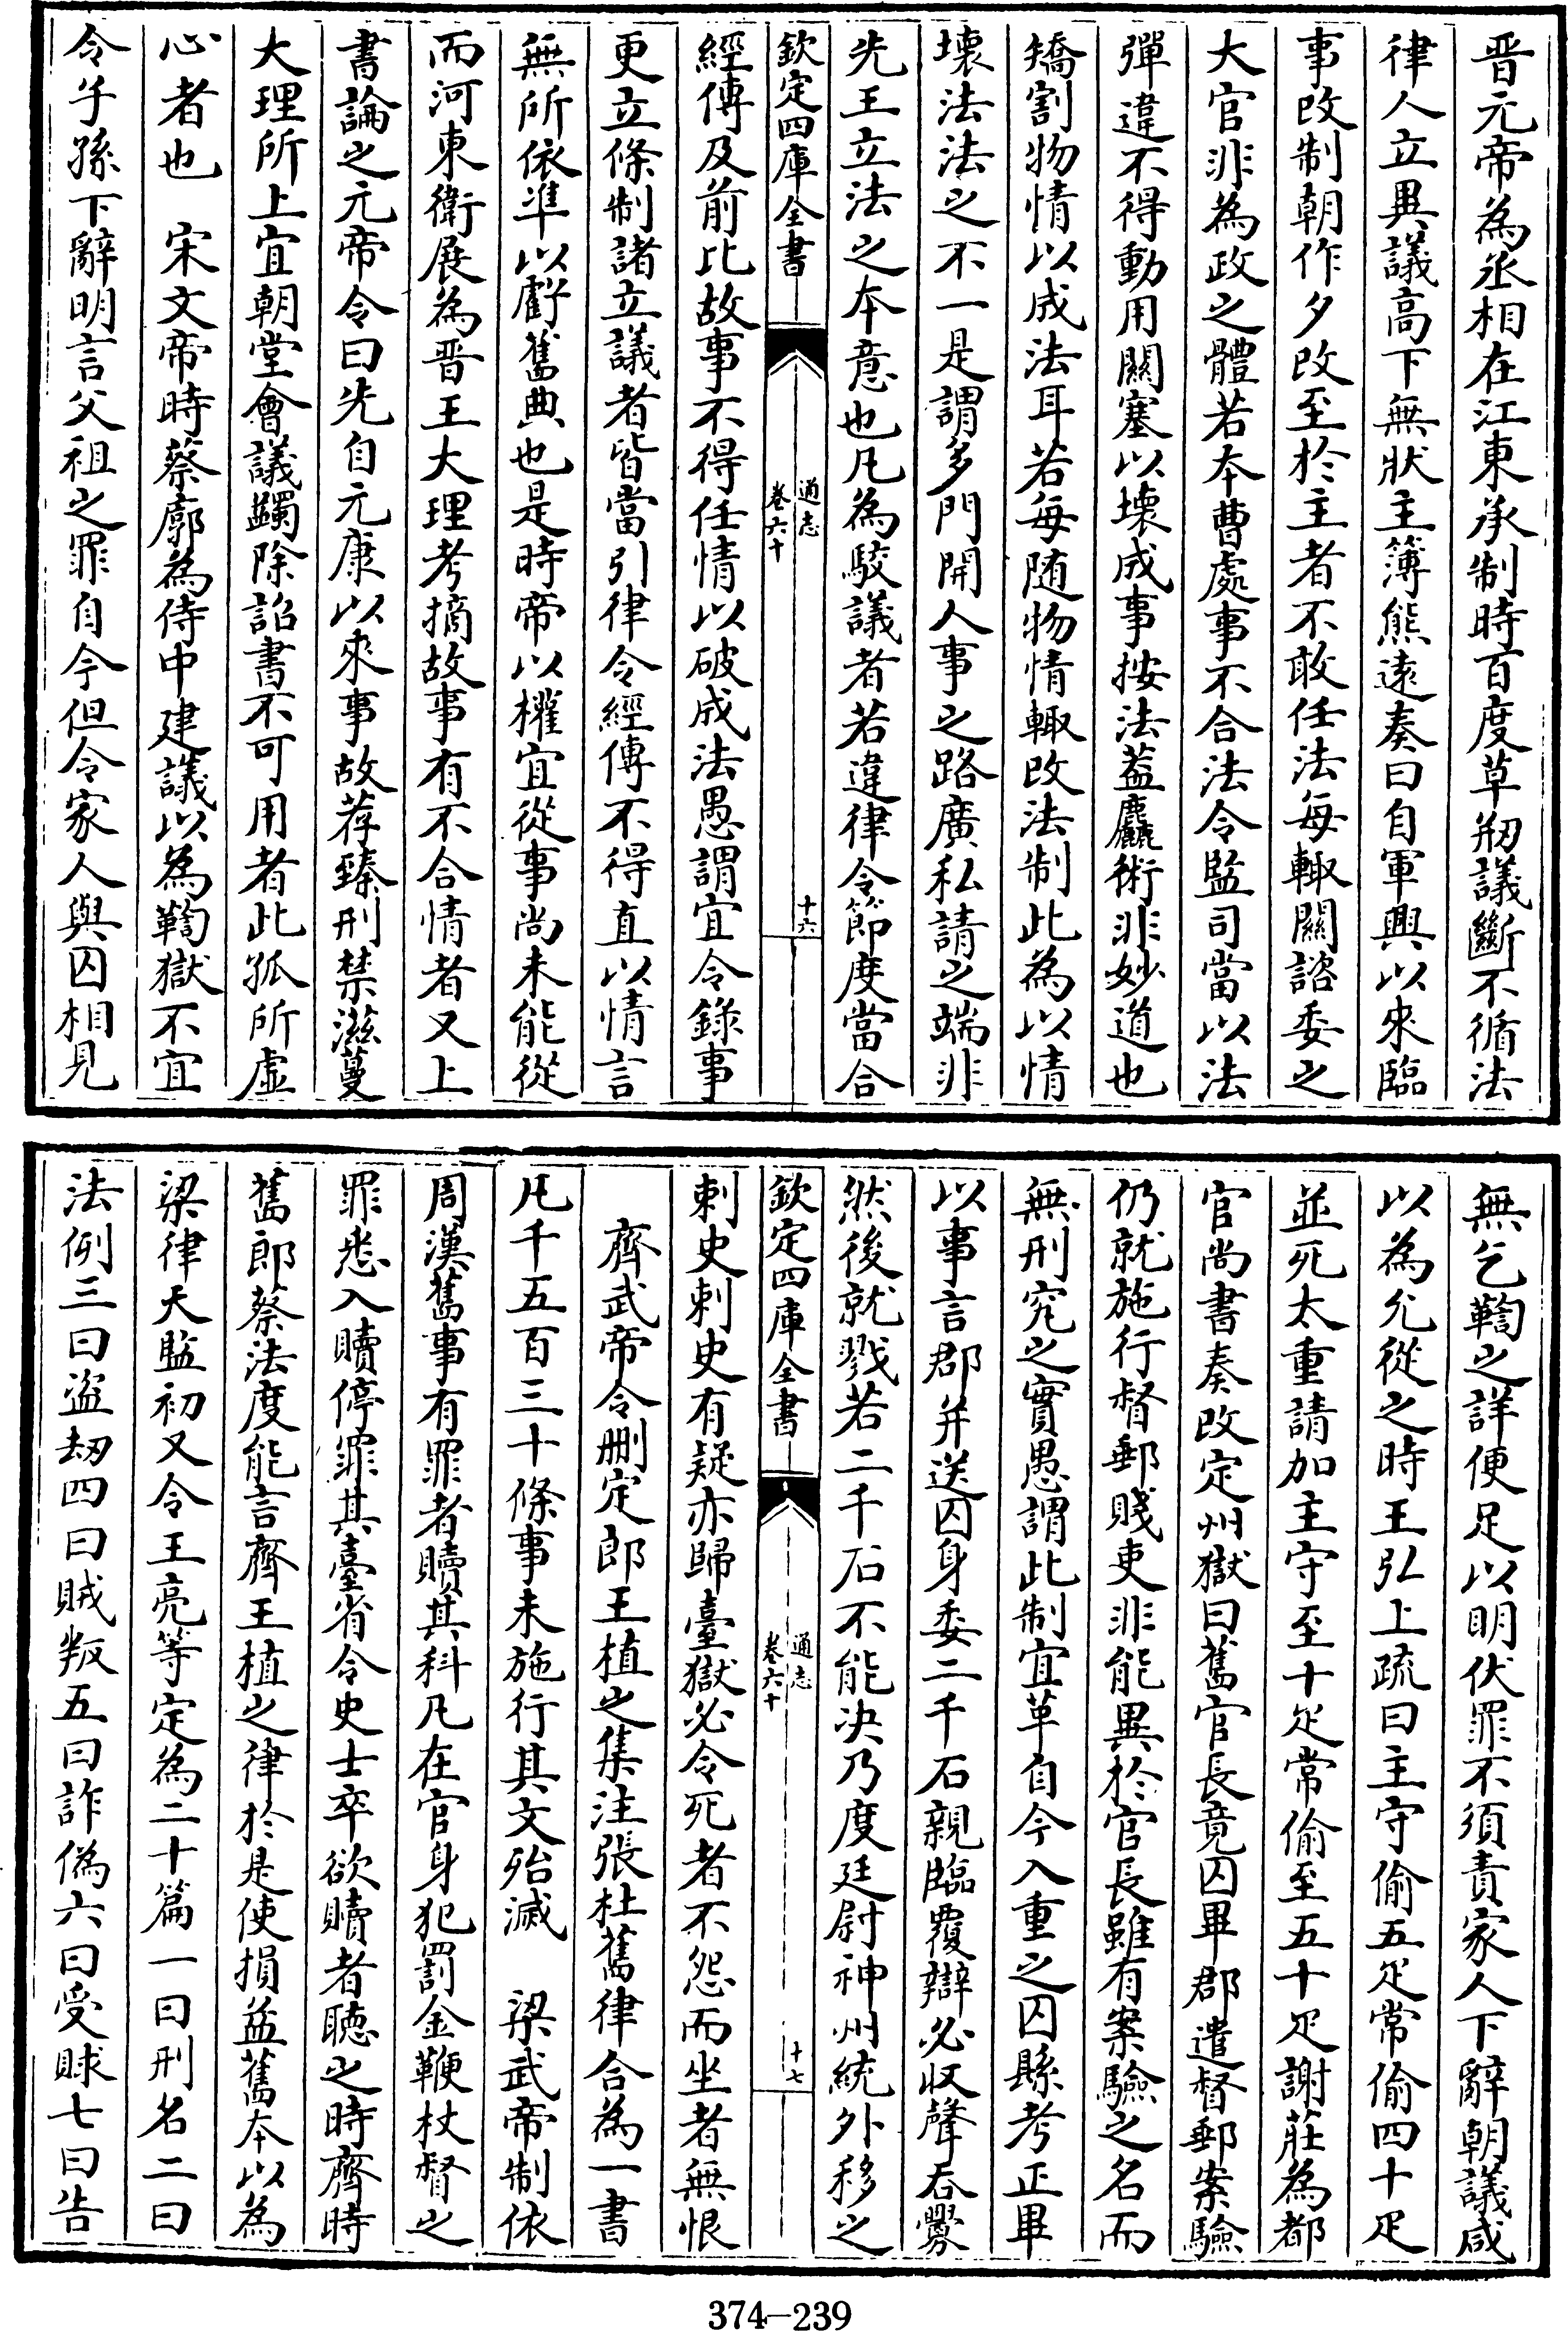 晋元帝為丞相在江東承制時百度草刱議斷不循法
律人立異議高下無狀主簿熊逺奏曰自軍興以來臨
事改制朝作夕改至於主者不敢任法每輙關諮委之
大官非為政之體若本曹處事不合法令監司當以法
彈違不得動用關塞以壊成事按法葢麤術非妙道也
矯割物情以成法耳若每随物情輙改法制此為以情
壊法法之不一是謂多門開人事之路廣私請之端非
先王立法之本意也凡為駮議者若違律令節度當合
欽定四庫全書
通志
卷六十
十六
經傳及前比故事不得任情以破成法愚謂宜令錄事
更立條制諸立議者皆當引律令經傳不得直以情言
無所依準以虧舊典也是時帝以權宜從事尚未能從
而河東衛展為晋王大理考摘故事有不合情者又上
書論之元帝令曰先自元康以來事故荐臻刑禁滋蔓
大理所上宜朝堂會議蠲除詔書不可用者此孤所虛
心者也　宋文帝時蔡廓為侍中建議以為鞫獄不宜
令子孫下辭明言父祖之罪自今但令家人與囚相見
無乞鞫之詳便足以明伏罪不須責家人下辭朝議咸
以為允從之時王弘上疏曰主守偷五疋常偷四十疋
並死太重請加主守至十疋常偷至五十疋謝莊為都
官尚書奏改定州獄曰舊官長竟囚畢郡遣督郵案驗
仍就施行督郵賤吏非能異於官長雖有案驗之名而
無刑究之實愚謂此制宜革自今入重之囚縣考正畢
以事言郡并送囚身委二千石親臨覆辯必収聲吞釁
然後就戮若二千石不能决乃度廷尉神州統外移之
欽定四庫全書
通志
卷六十
十七
刺史刺史有疑亦歸臺獄必令死者不怨而坐者無恨
齊武帝令删定郎王植之集注張杜舊律合為一書
凡千五百三十條事未施行其文殆滅　梁武帝制依
周漢舊事有罪者贖其科凡在官身犯罰金鞭杖督之
罪悉入贖停罪其臺省令史士卒欲贖者聴之時齊時
舊郎蔡法度能言齊王植之律於是使損益舊本以為
梁律天監初又令王亮等定為二十篇一曰刑名二曰
法例三曰盗刼四曰賊叛五曰詐偽六曰受賕七曰告
374-239